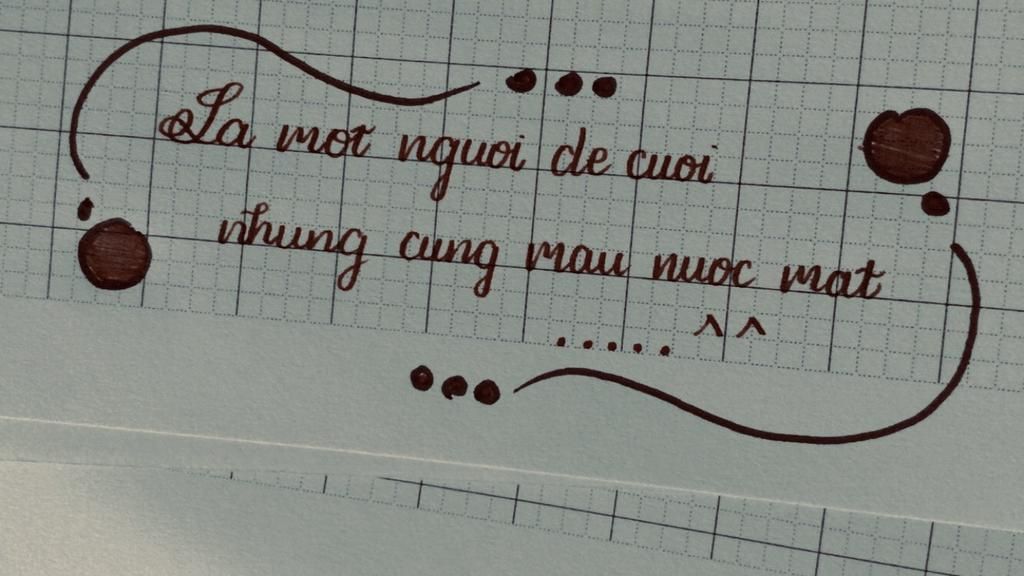 La mot nguoi de cuoi
nhung cung mau nuoc mat
..... ^^